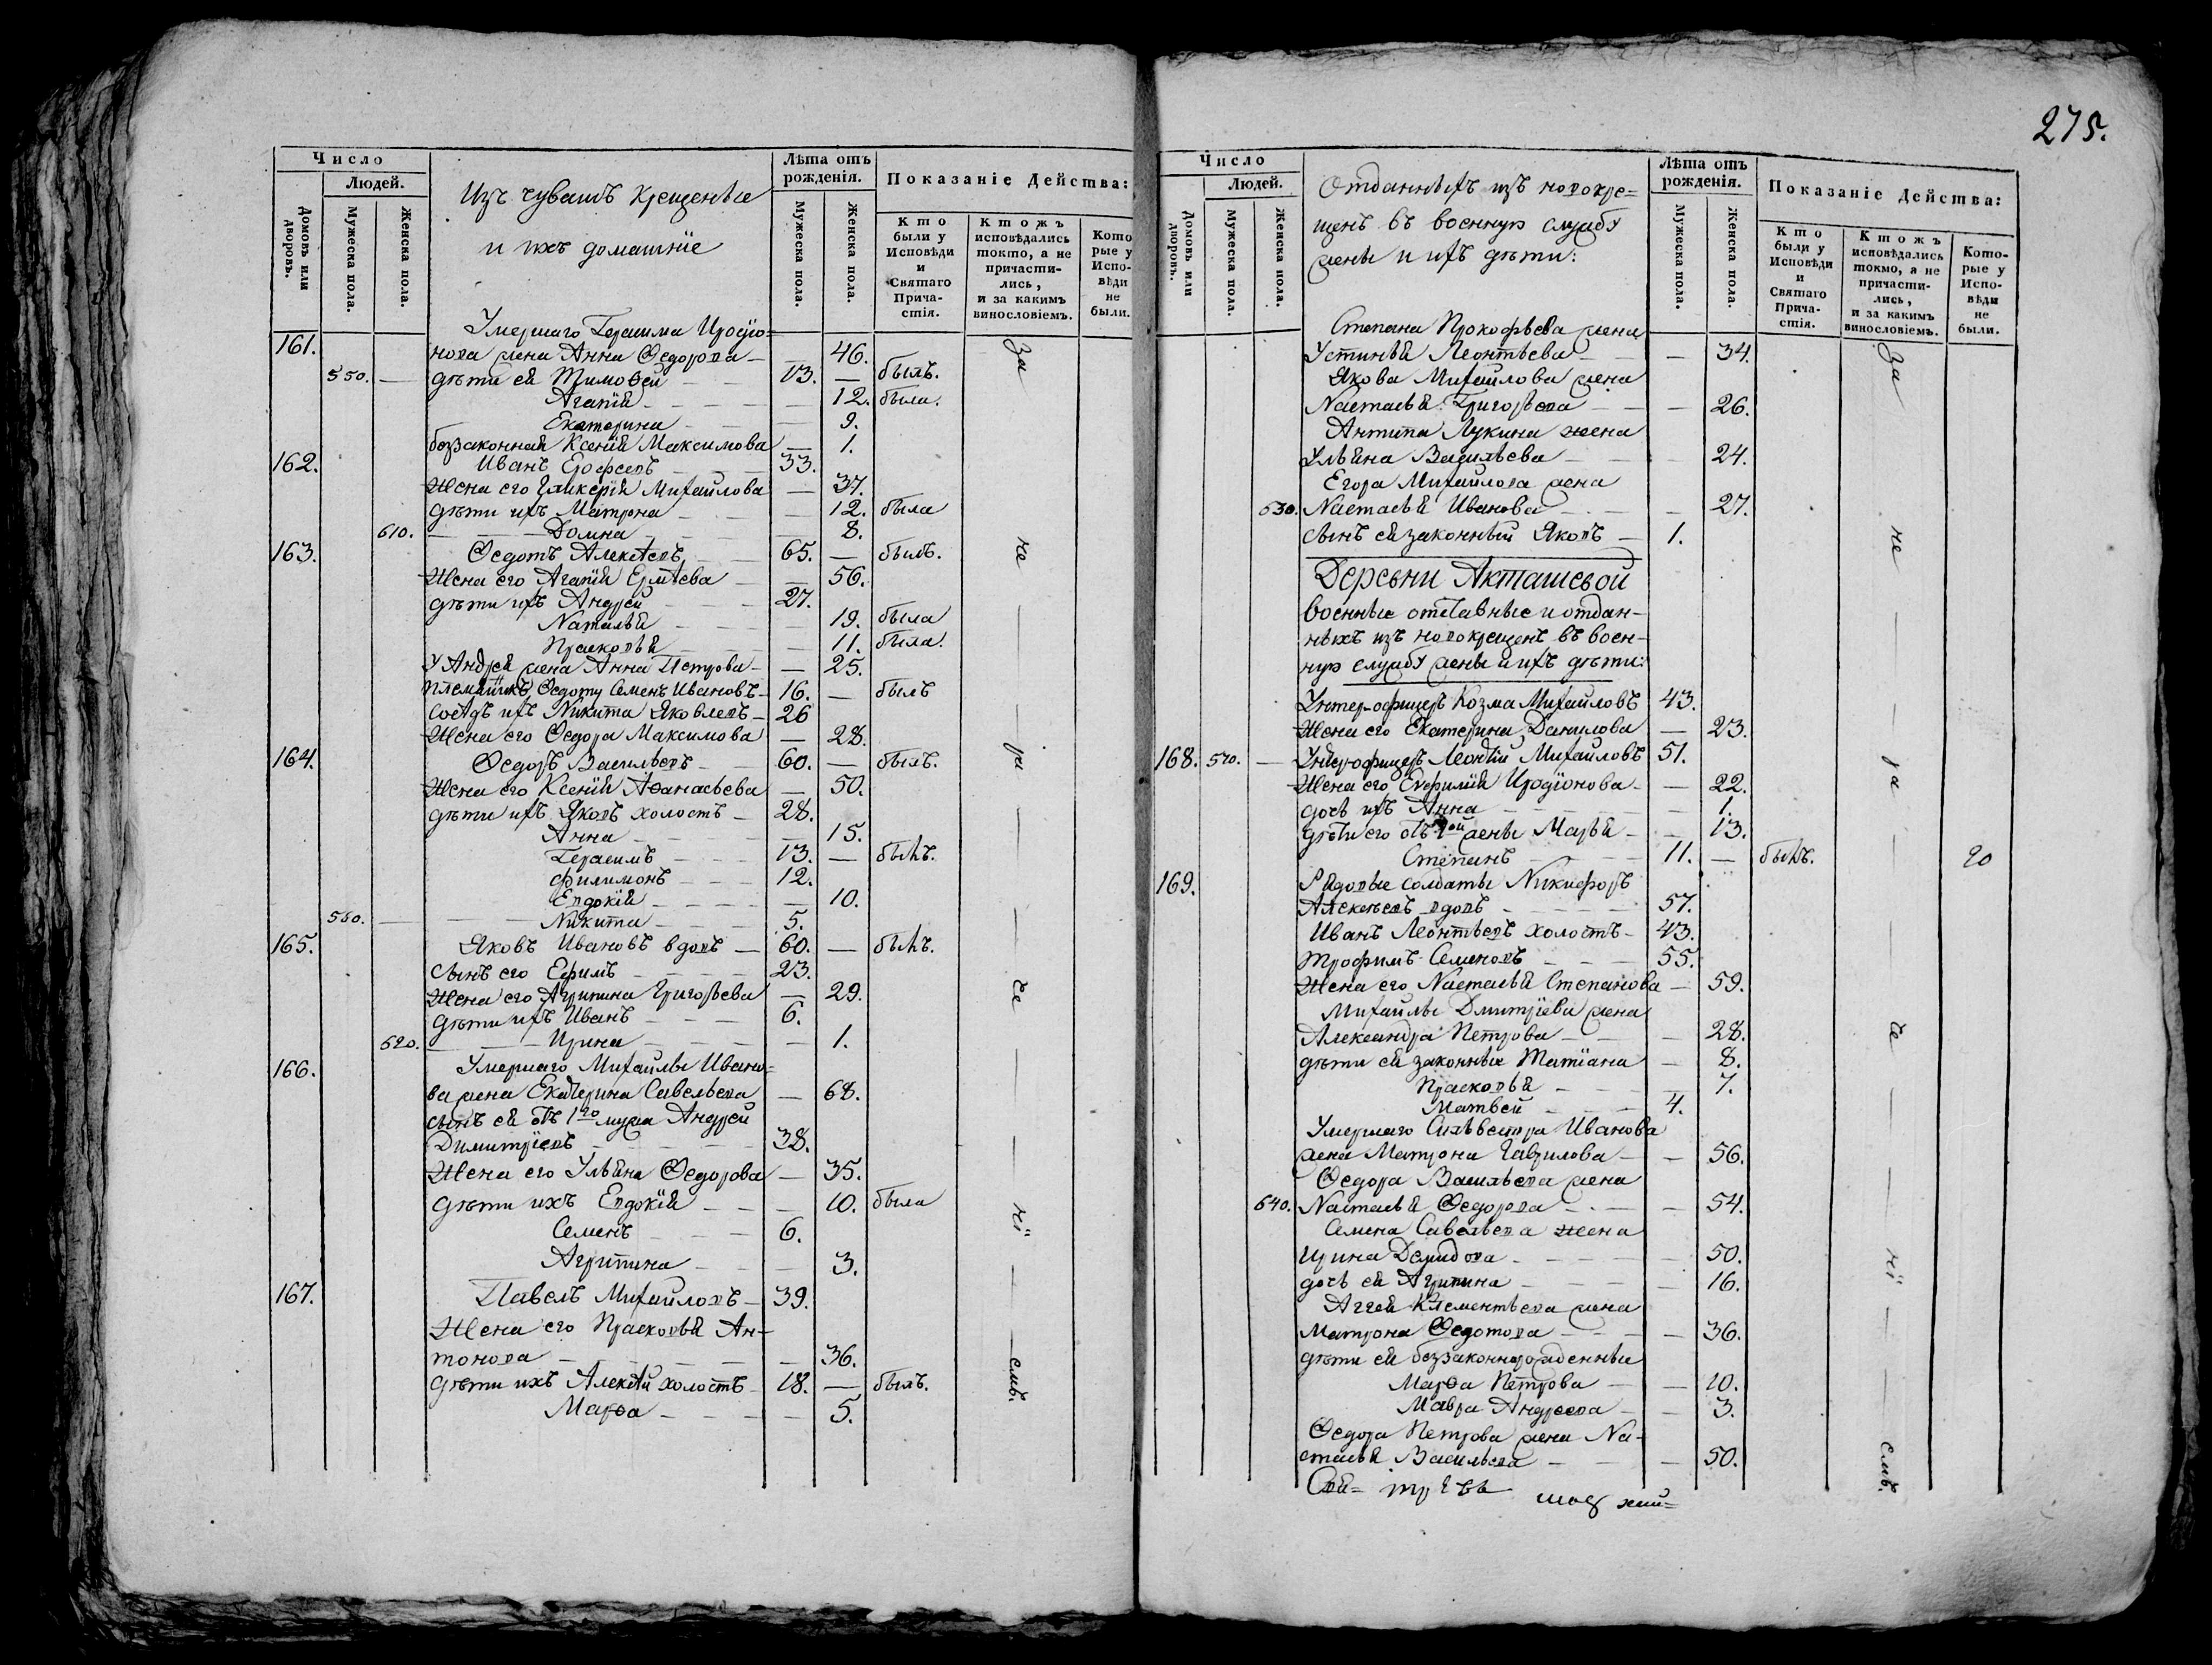 275.
Число
Людей.
Домовъ или дворовъ.
Мужеска пола.
Женска пола.
Изъ чувашъ крещеные
и ихъ домашнїе
Лѣта отъ рожденія.
Мужеска пола.
Женска пола.
Показаніе Действа:
Кто были у Исповѣди и Святаго Причастія.
Ктожъ исповѣдались токмо, а не причастились, и за какимъ винословіемъ.
Которые у Исповѣди не были.
161. Умершаго Герасима Иродїо=
нова жена Анна Ѳедорова — — 46.
550. — дѣти ея Тимоѳей — — 13. — былъ.
Агапїя — — — — 12. была.
Екатерина — — — 9.
беззаконная Ксенїя Максимова — 1.
162. Иванъ Ерофеевъ — — 33.
Жена его Гликерїя Михайлова — 37.
дѣти ихъ Матрона — — — 12. была
610. — — — Домна — — — 8.
163. Ѳедотъ Алексѣевъ — 65. — былъ.
Жена его Агапїя Ермѣева — — 56.
дѣти ихъ Андрей — — — 27.
Наталья — — — — 19. была
Прасковья — — — 11. была.
У Андрея жена Анна Петрова — — 25.
племянникъ Ѳедоту Семенъ Ивановъ — 16. — былъ
Сосѣдъ ихъ Никита Яковлевъ — 26
Жена его Ѳедора Максимова — 28.
164. Ѳедоръ Васильевъ — — 60. — былъ.
Жена его Ксенїя Аѳанасьева — 50.
дѣти ихъ Яковъ холостъ — 28.
Анна — — — — 15.
Герасимъ — — — 13. — былъ.
Филимонъ — — — 12.
Евдокїя — — — — 10.
550. — — — Никита — — — 5.
165. Яковъ Ивановъ вдовъ — 60. — былъ.
сынъ его Ефимъ — — — 23.
Жена его Агрипина Григорьева — 29.
дѣти ихъ Иванъ — — — 6.
620. — — — Ирина — — — — 1.
166. Умершаго Михайлы Ивано=
ва жена Екатерина Савельева — 68.
сынъ ея отъ 1го мужа Андрей
Димитрїевъ — — — — 38.
Жена его Ульяна Ѳедорова — 35.
дѣти ихъ Евдокїя — — — 10. была
Семенъ — — — 6.
Агрипина — — — — 3.
167. Павелъ Михайловъ — 39.
Жена его Прасковья Ан-
тонова — — — — — 36.
дѣти ихъ Алексѣй холостъ — 18. — былъ.
Марѳа — — — — 5.
За — не — ра — че — нї — емъ.
Число
Людей.
Домовъ или дворовъ.
Мужеска пола.
Женска пола.
Отданныхъ изъ новокре=
щенъ въ военную службу
жены и ихъ дѣти:
Лѣта отъ рожденія.
Мужеска пола.
Женска пола.
Показаніе Действа:
Кто были у Исповѣди и Святаго Причастія.
Ктожъ исповѣдались токмо, а не причастились, и за какимъ винословіемъ.
Которые у Исповѣди не были.
Степана Прокофьева жена
Устинья Леонтьева — — — 34.
Якова Михайлова жена
Настасья Григорьева — — — 26.
Антипа Лукина жена
Ульяна Васильева — — — 24.
Егора Михайлова жена
630. Настасья Иванова — — — 27.
сынъ ея законный Яковъ — 1.
Деревни Акташевой
военные отставные и отдан-
ныхъ изъ новокрещенъ въ воен-
ную службу жены и ихъ дѣти:
Унтер-офицеръ Козма Михайловъ 43.
Жена его Екатерина Данилова — 23.
168. 570. — Унтер-офицеръ Леонтїй Михайловъ 51.
Жена его Евфимїя Иродїонова — — 22.
дочь ихъ Анна — — — — 1.
дѣти его отъ 1ой жены Марья — — 13.
Степанъ — — — 11. — былъ. 20
169. Рядовые солдаты Никифоръ
Алексѣевъ вдовъ — — — 57.
Иванъ Леонтьевъ холостъ — 43.
Трофимъ Семеновъ — — — 55.
Жена его Настасья Степанова — 59.
Михайлы Дмитрїева жена
Александра Петрова — — — 28.
дѣти ея законные Татїана — 8.
Прасковья — — — 7.
Матвей — — — 4.
Умершаго Сильвестра Иванова
жена Матрона Гаврилова — — 56.
Ѳедора Васильева жена
640. Настасья Ѳедорова — — — 54.
Семена Савельева жена
Ирина Демидова — — — — 50.
дочь ея Агрипина — — — 16.
Аггея Клементьева жена
Матрона Ѳедотова — — — 36.
дѣти ея беззаконнорожденные
Марѳа Петрова — — 10.
Мавра Андреева — — 3.
Ѳедора Петрова жена На-
стасья Васильева — — — 50.
За — не — ра — че — нї — емъ.